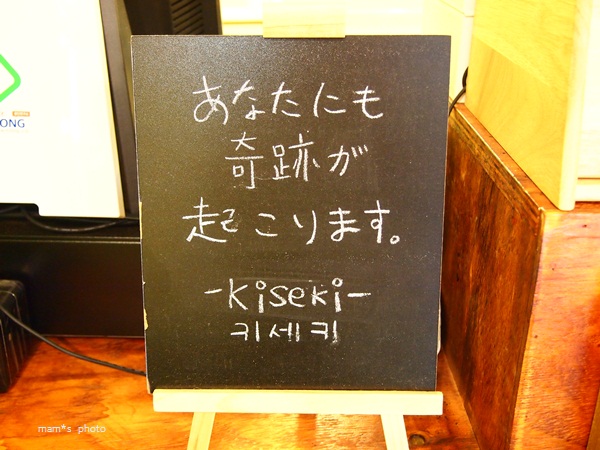 ONG
あなたにも
奇跡が
起こります。
-Kiseki-
키세키
mam*s photo